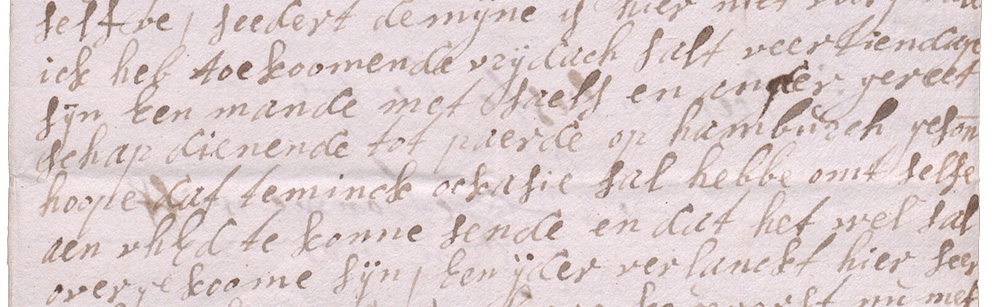 selfde, seedert de myne is hier niet
ick heb toekoomende vrydach salt veertiendage
syn een mande met saels en ander gereet
schap dienende tot paerde op hamburch geson
hoope dat teminck ockasie sal hebbe omt selfe
aen vhed te konne sende en dat het wel sal
overgekoome syn, een yder verlanckt hier seer